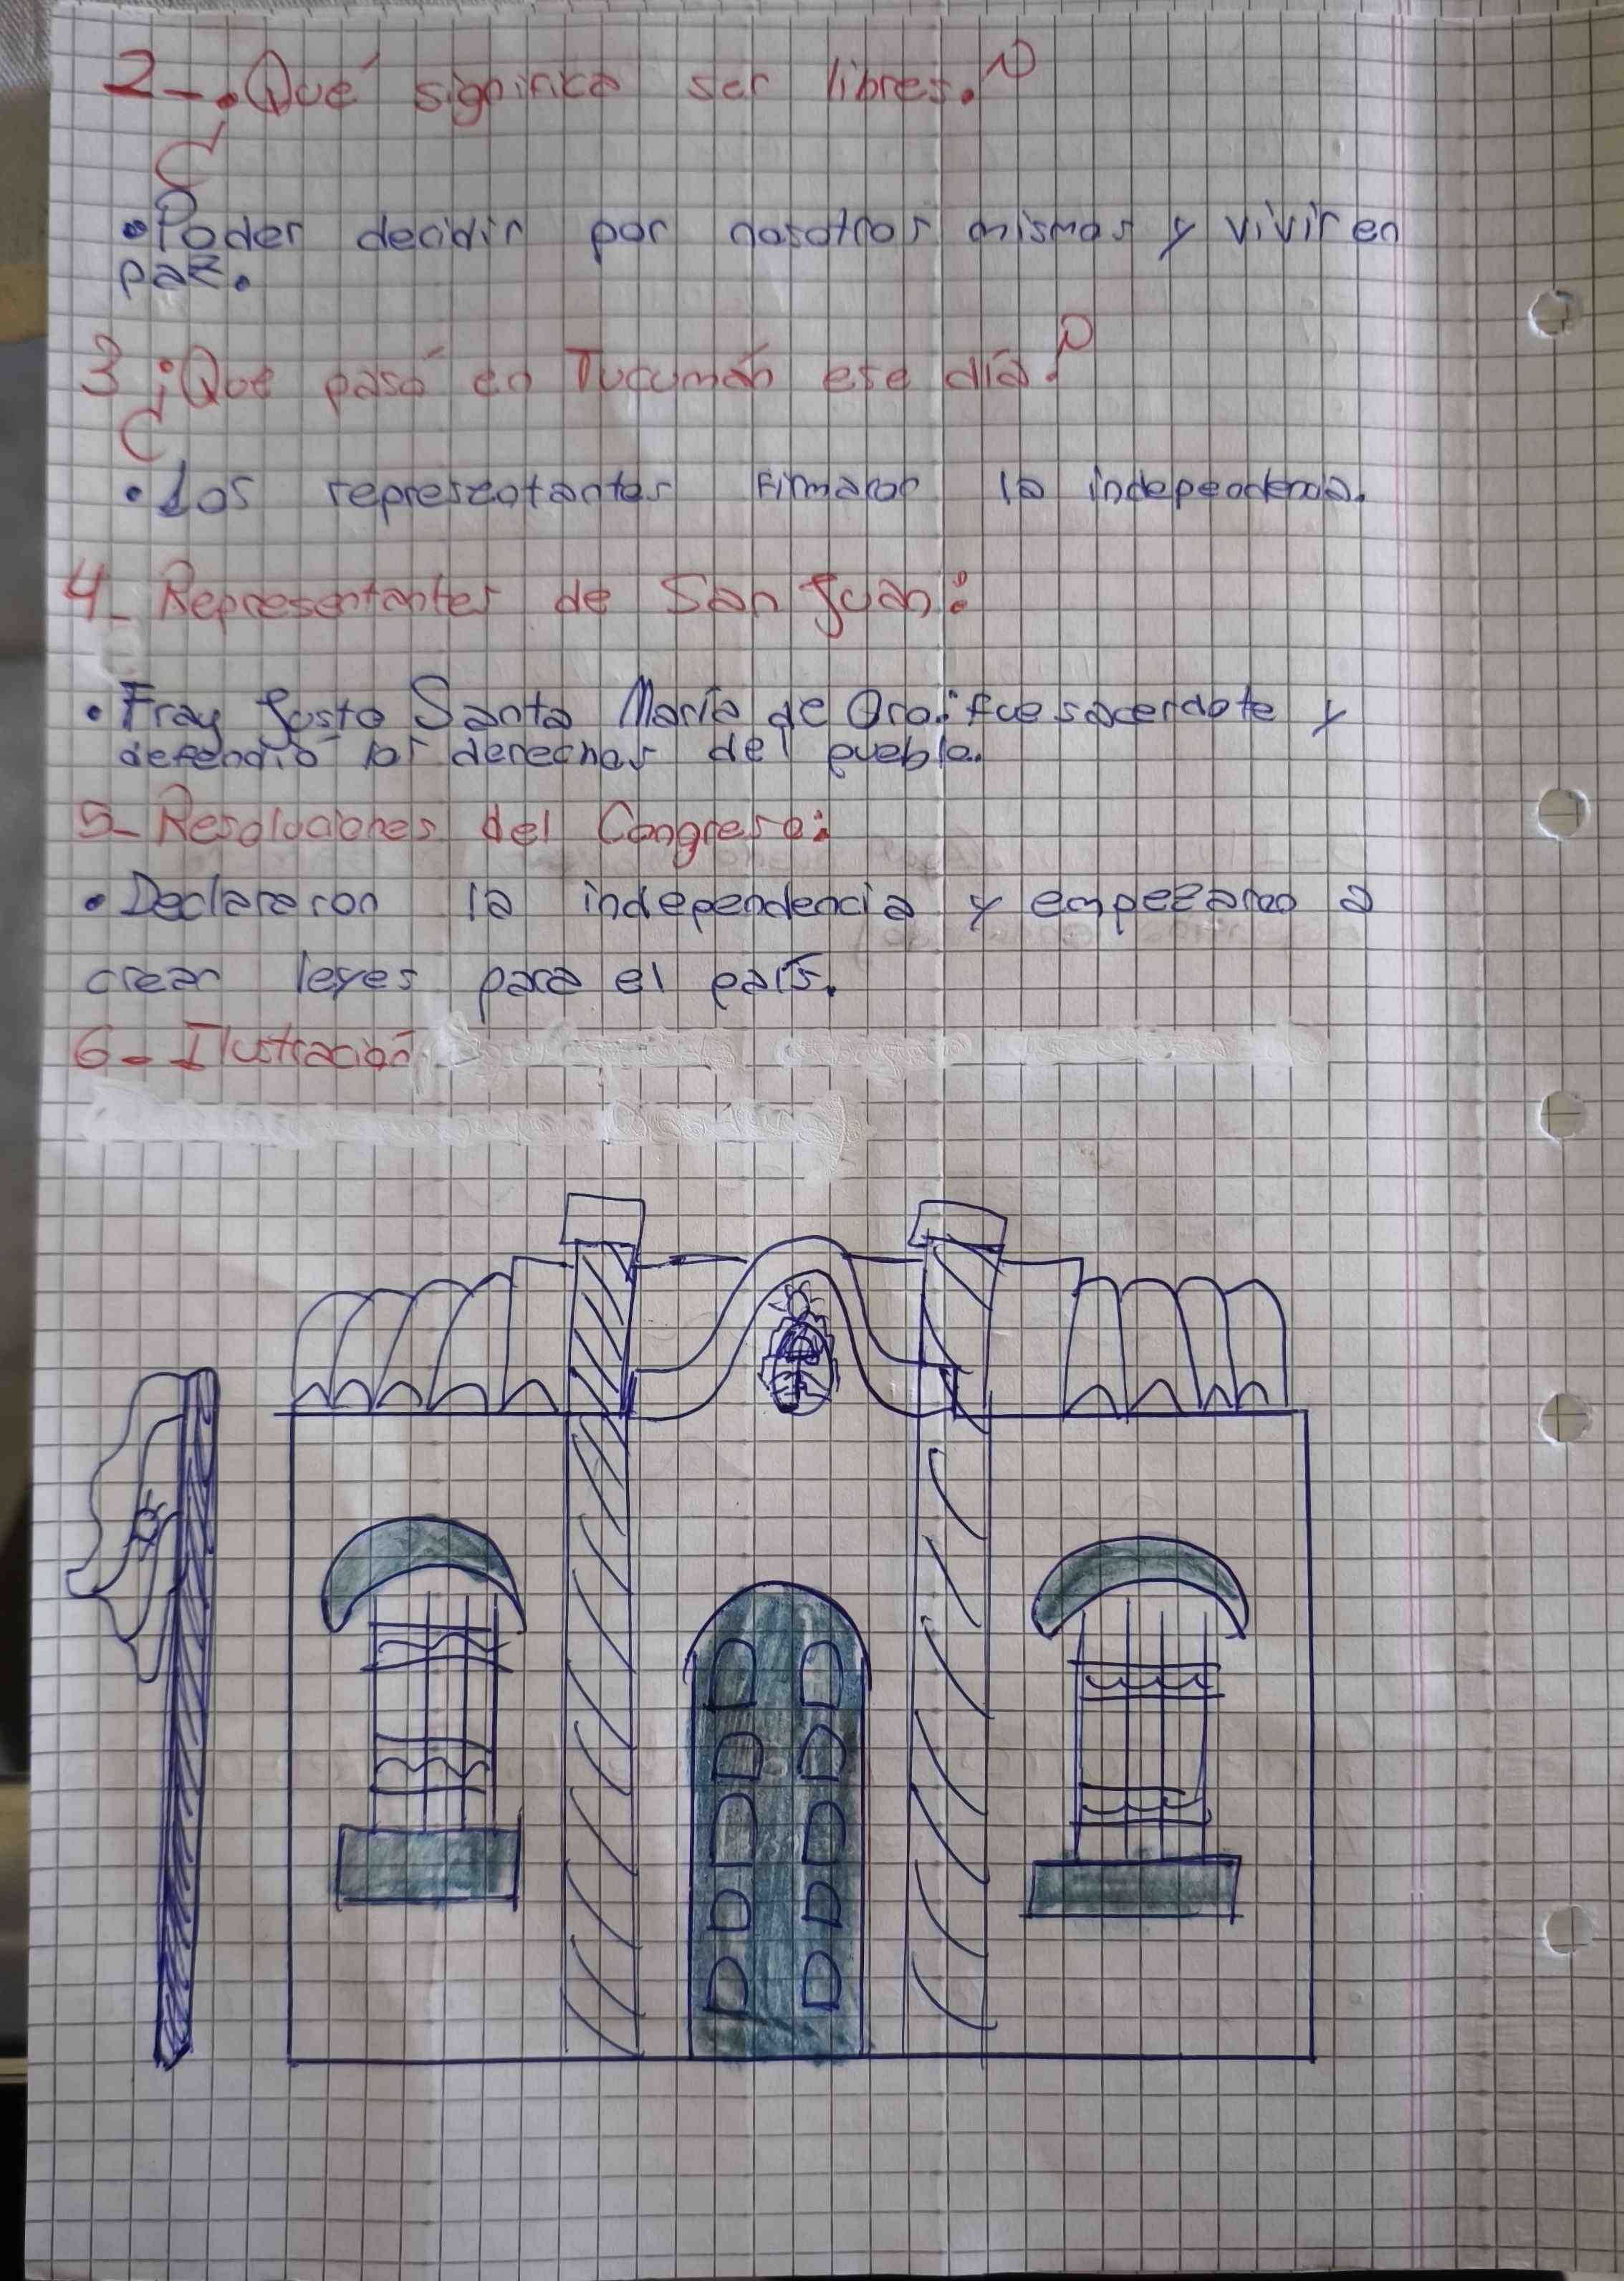 2-. ¿Qué significa ser libres.?
• Poder decidir por nosotros mismos y vivir en
paz.
3 ¿Que pasó en Tucumán ese día?
• Los representantes Firmaron la independencia.
4_ Representantes de San Juan:
• Fray Justo Santa María de Oro: fue sacerdote y
defendió los derechos del pueblo.
5- Resoluciones del Congreso:
• Declararon la independencia y empezaron a
crear leyes para el país.
6- Ilustración